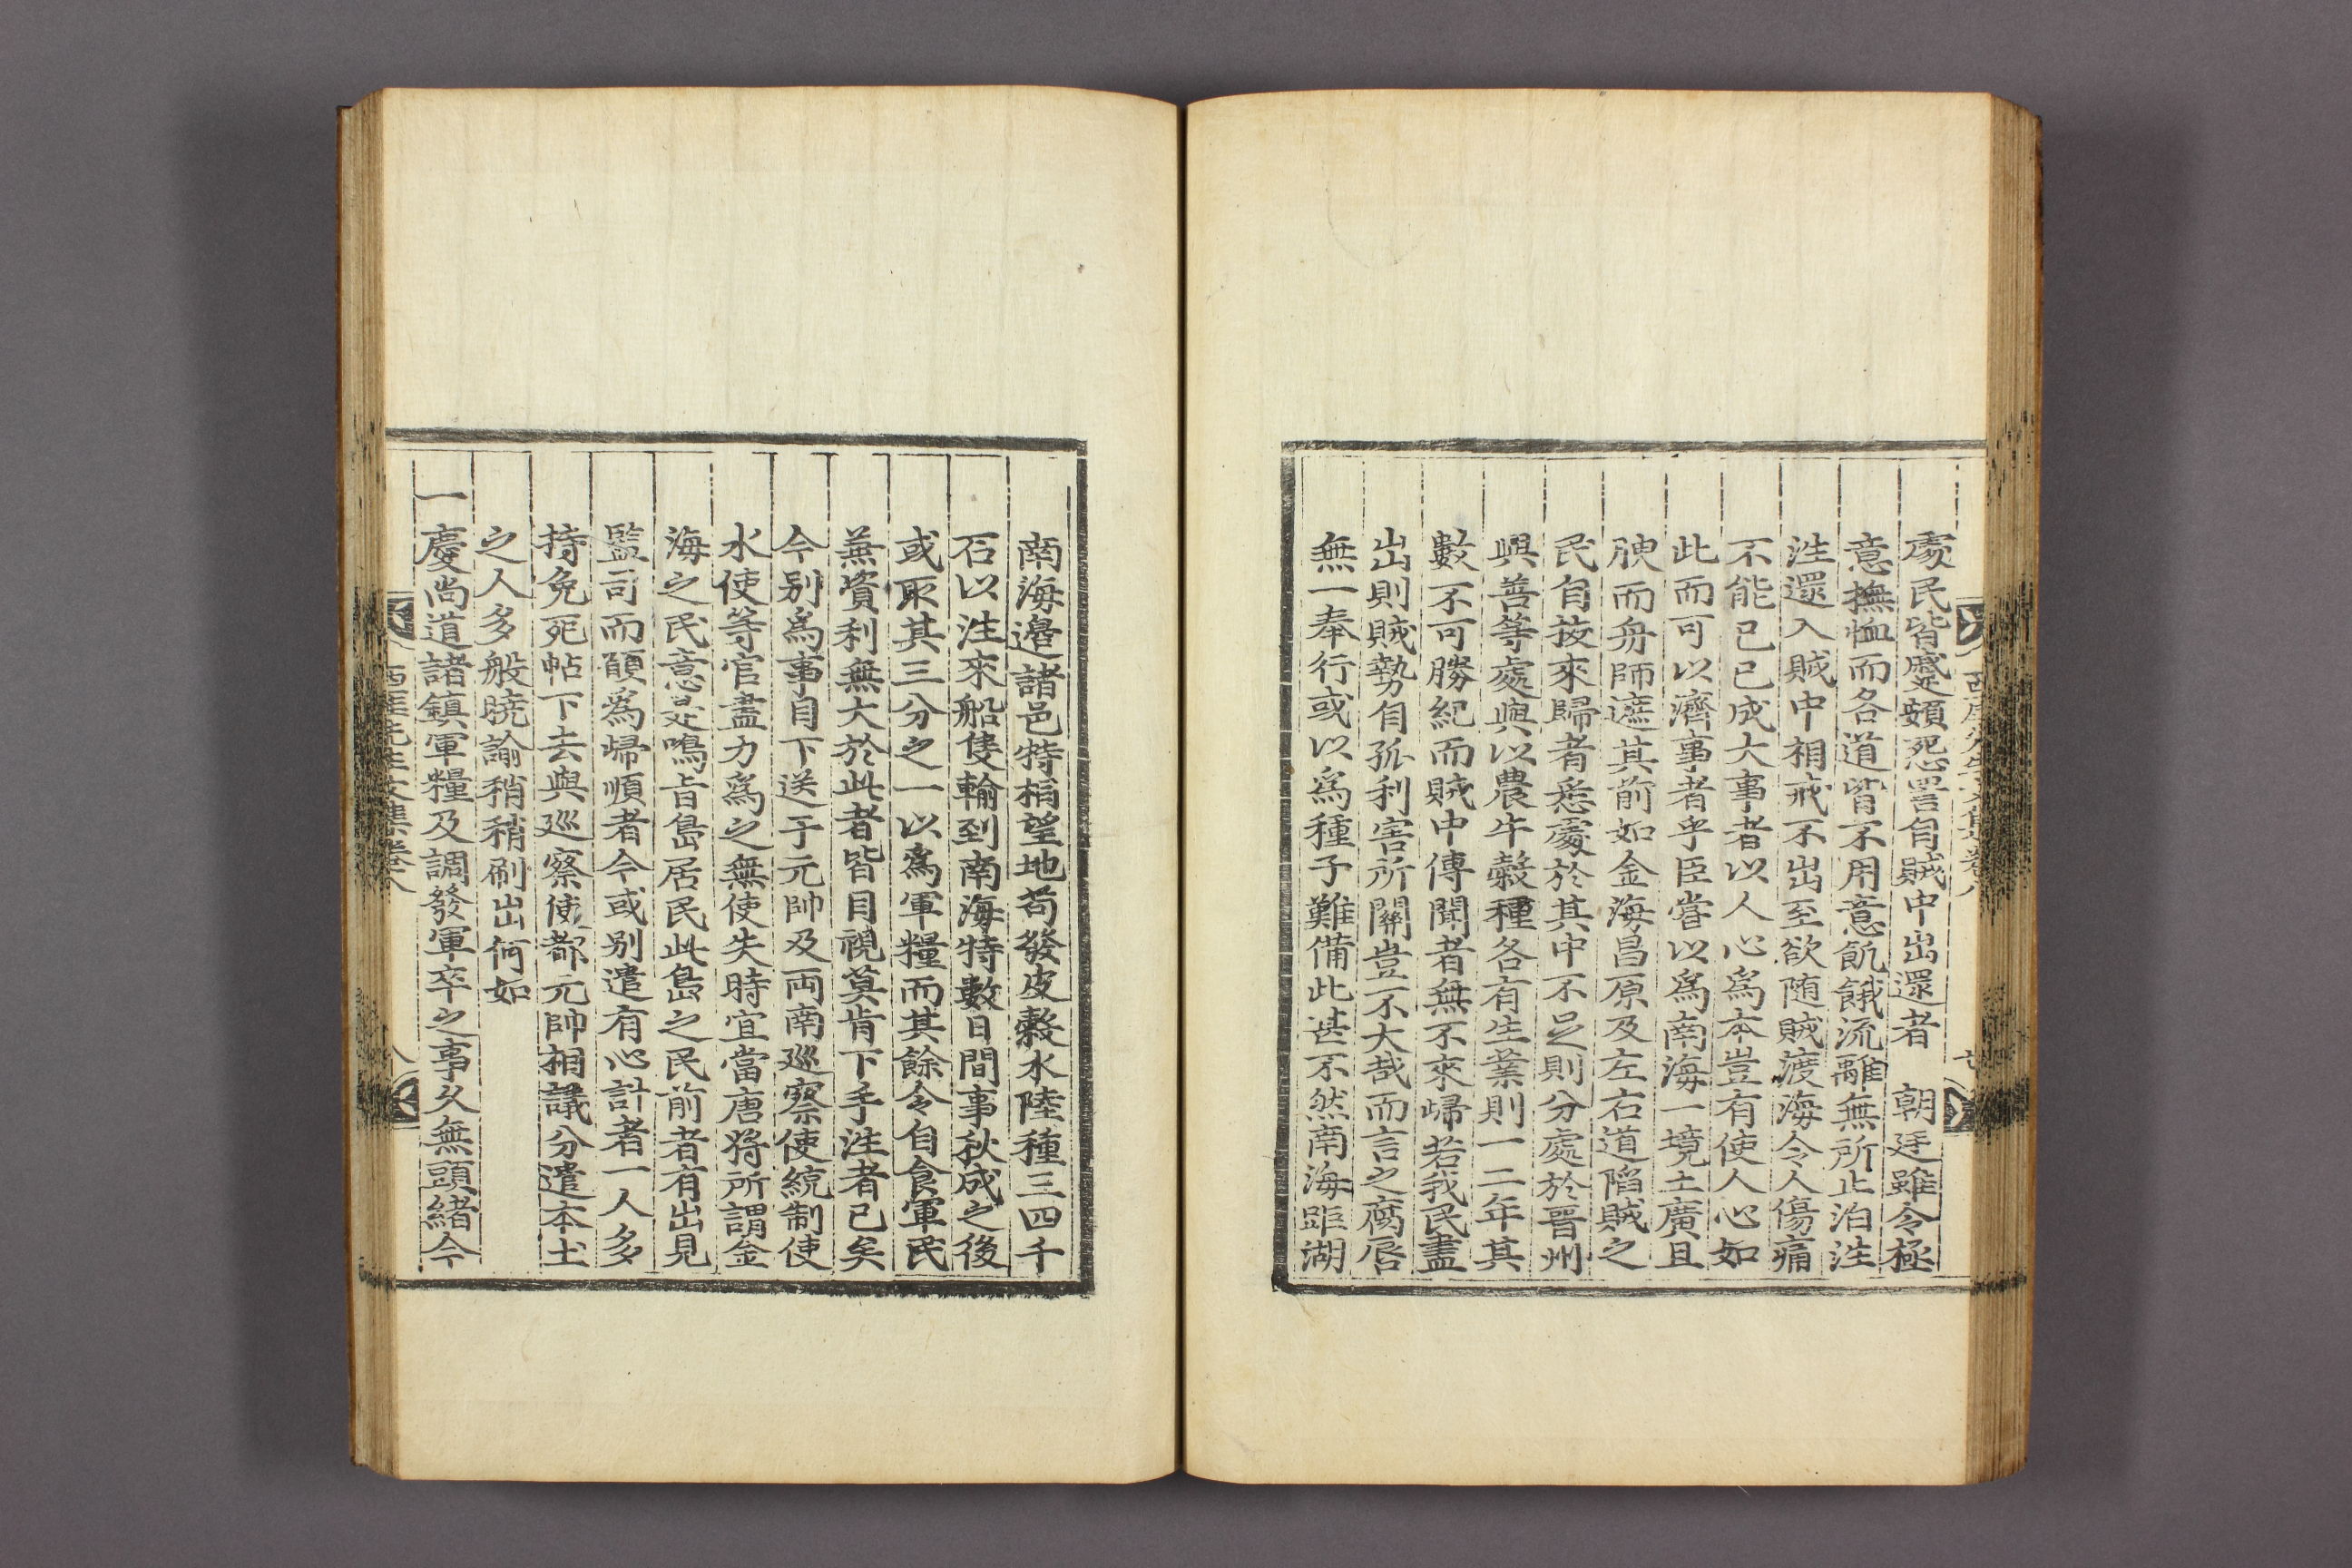 處民皆蹙頞怨詈自賊中出還者 朝廷雖令極
意撫恤而各道皆不用意飢餓流離無所止泊往
往還入賊中相戒不出至欲随賊渡海令人傷痛
不能已已成大事者以人心爲本豈有使人心如
此而可以濟事者乎臣嘗以爲南海一境土廣且
腴而舟師遮其前如金海昌原及左右道陷賊之
民自拔來歸者悉處於其中不足則分處於晋州
興善等處與以農牛穀種各有生業則一二年其
數不可勝紀而賊中傳聞者無不來歸若我民盡
出則賊勢自孤利害所關豈不大哉而言之腐唇
無一奉行或以爲種子難備此甚不然南海距湖
南海邉諸邑特相望地苟發皮糓水陸種三四千
石以往來船隻輸到南海特數日間事秋成之後
或取其三分之一以爲軍糧而其餘令自食軍民
兼資利無大於此者皆目視莫肯下手往者已矣
今别爲事目下送于元帥及両南巡察使統制使
水使等官盡力爲之無使失時宜當唐将所謂金
海之民意是鳴旨島居民此島之民前者有出見
監司而願爲歸順者今或别遣有心計者一人多
持免死帖下去與巡察使都元帥相議分遣本土
之人多般曉諭稍稍刷出何如
一慶尚道諸鎮軍糧及調發軍卒之事久無頭緒今
西厓先生文集卷八